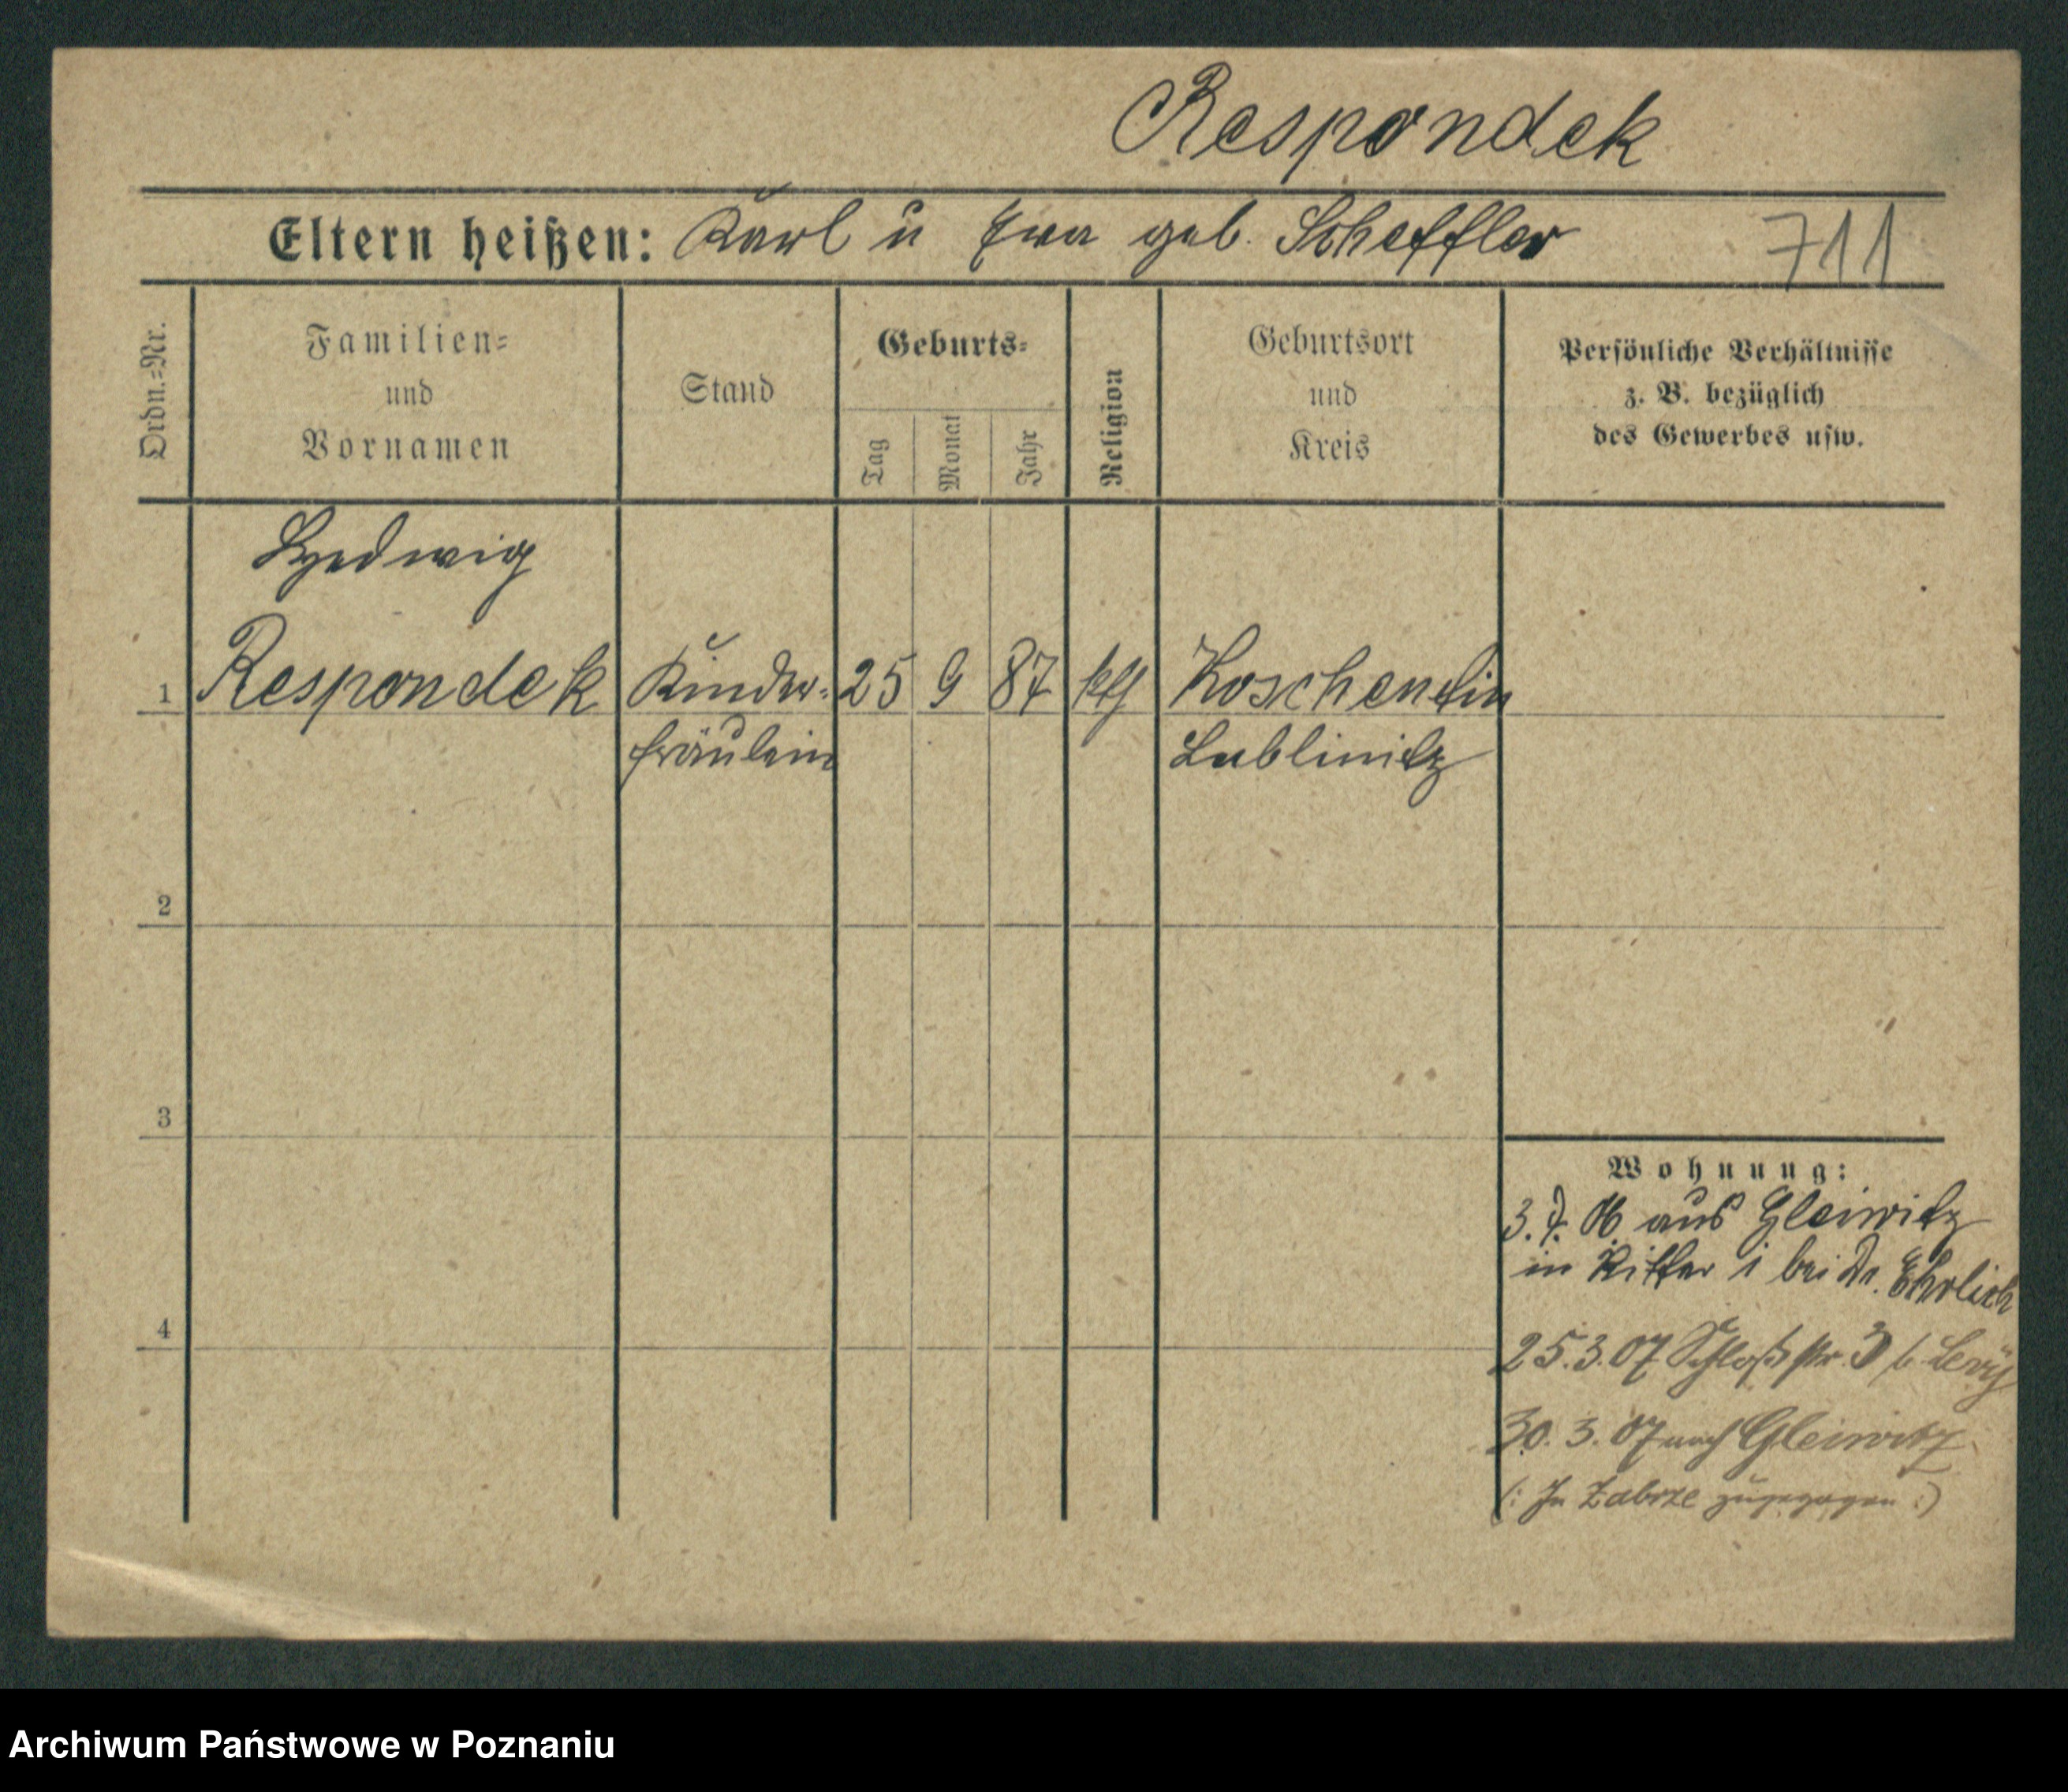 Respondek
Eltern heißen: Karl u Eva geb. Scheffler 711
Ordn.=Nr.
Familien=
und
Vornamen
Stand
Geburts=
Tag
Monat
Jahr
Religion
Geburtsort
und
Kreis
Persönliche Verhältnisse
z. B. bezüglich
des Gewerbes usw.
Hedwig
1 Respondek Kinder= 25 9 87 kth Koschentin
fräulein Lublinitz
2
3
4
Wohnung:
06 aus Gleiwitz
in Ritter 1 bei Dr. Ehrlich
25.3.07 Schloßstr. 3 b. Levy
30. 3. 07 nach Gleiwitz
(: In Zabrze zugezogen :)
Archiwum Państwowe w Poznaniu